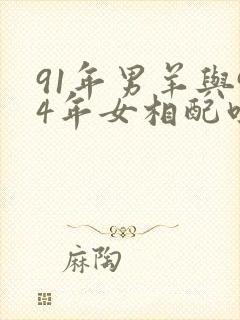 91年男羊與9
4年女相配吗
麻陶